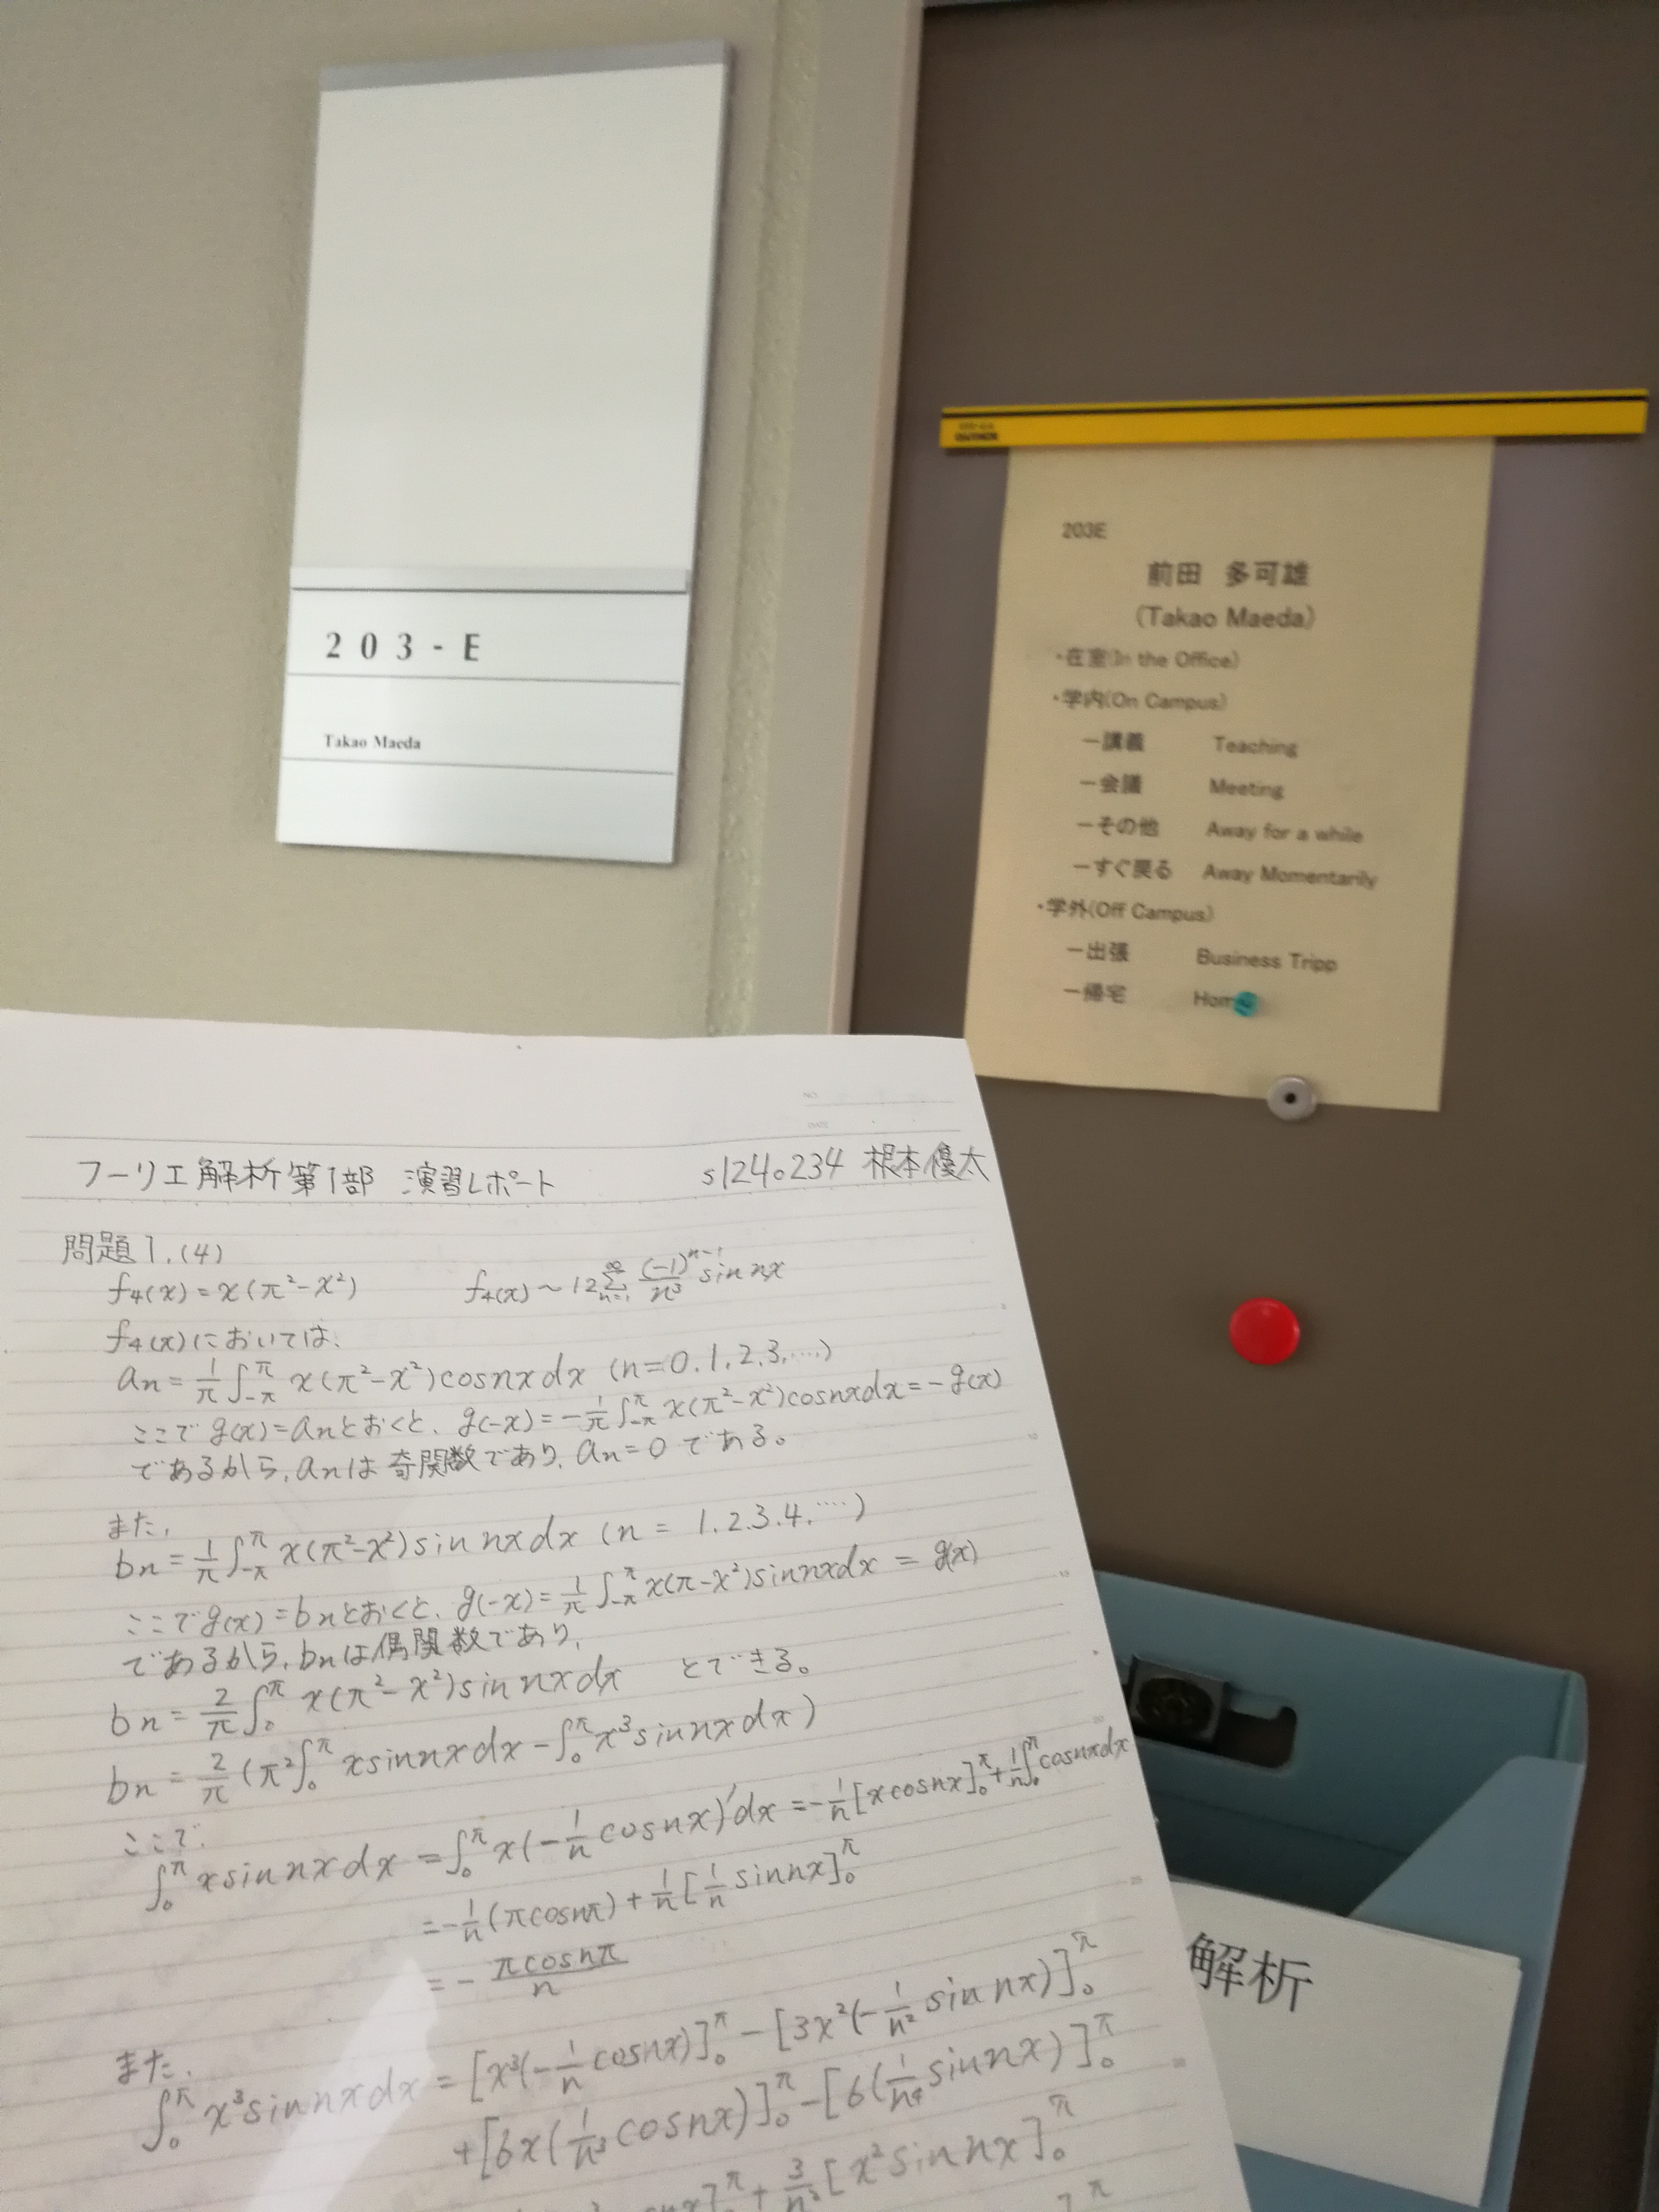 203-E
Takao Maeda
203E
前田 多可雄
(Takao Maeda)
・在室(In the Office)
・学内(On Campus)
ー講義 Teaching
ー会議 Meeting
ーその他 Away for a while
ーすぐ戻る Away Momentarily
・学外(Off Campus)
ー出張 Business Tripp
ー帰宅 Hom
NO.
DATE
フーリエ解析第1部 演習レポート s1240234 根本優太
問題1.(4)
f₄(x)=x(π²-x²) f₄(x)~12∑_{n=1}^{∞} (-1)^{n-1}/n³ sin nx
f₄(x)においては、
an=1/π∫_{-π}^{π} x(π²-x²)cosnxdx (n=0.1.2.3.….)
ここでg(x)=anとおくと、g(-x)=-1/π∫_{-π}^{π} x(π²-x²)cosnxdx=-g(x)
であるから、anは奇関数であり、an=0である。
また、
bn=1/π∫_{-π}^{π} x(π²-x²)sin nxdx (n=1.2.3.4.….)
ここでg(x)=bnとおくと、g(-x)=1/π∫_{-π}^{π} x(π-x²)sinnxdx=g(x)
であるから、bnは偶関数であり、
bn=2/π∫_{0}^{π} x(π²-x²)sin nxdx とできる。
bn=2/π(π²∫_{0}^{π} xsinnxdx-∫_{0}^{π} x³sinnxdx)
ここで、
∫_{0}^{π} xsin nxdx=∫_{0}^{π} x(-1/n cosnx)'dx=-1/n[xcosnx]_{0}^{π}+1/n∫_{0}^{π} cosnxdx
=-1/n(πcosnπ)+1/n[1/n sinnx]_{0}^{π}
=-πcosnπ/n
また、
∫_{0}^{π} x³sinnxdx=[x³(-1/n cosnx)]_{0}^{π}-[3x²(-1/n² sin nx)]_{0}^{π}
+[6x(1/n³ cosnx)]_{0}^{π}-[6(1/n⁴ sinnx)]_{0}^{π}
+3/n²[x²sin nx]_{0}^{π}
解析